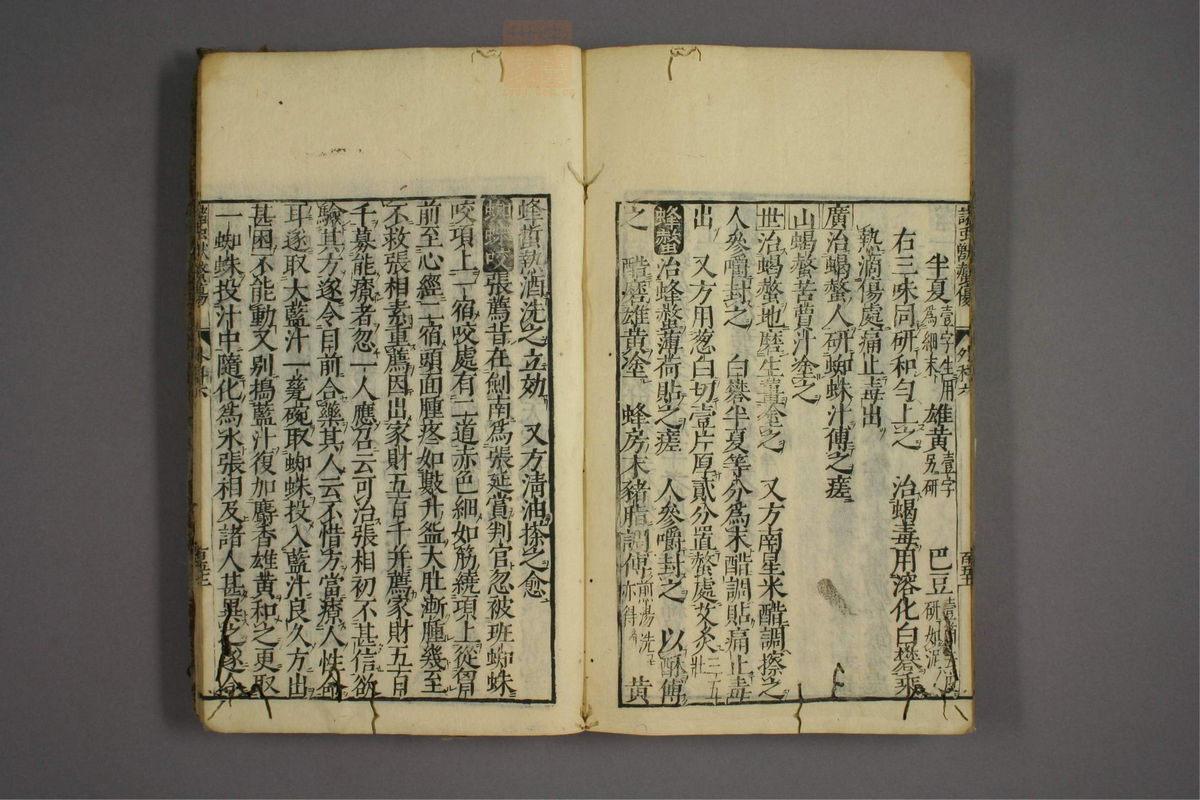 半夏壹字生用為細末 雄黄壹字另研 巴豆
右三味同研和勻上之 治蝎毒用溶化白礬乘
熱滴傷處痛止毒出
廣治蝎螫人研蜘蛛汁傅之瘥
山蝎螫苦蕒汁塗之
世治蝎螫地磨生薑塗之 又方南星米醋調擦之
人參嚼封之 白礬半夏等分為末醋調貼痛止毒
出 又方用葱白切壹片厚貳分置螫處艾灸三五壯
蜂螫治蜂螫薄荷貼之瘥 人參嚼封之 以酥傅
之 醋磨雄黄塗 蜂房末豬脂調傅煎湯洗亦得 黄
蜂螫熱酒洗之立効 又方清油搽之愈
蜘蛛咬張薦昔在劍南為張延賞判官忽被班蜘蛛
咬項上一宿咬處有二道赤色細如筋繞項上從胷
前至心經二宿頭面腫疼如數升盌大肚漸腫幾至
不救張相素重薦因出家財五百千并薦家財五百
千募能療者忽一人應召云可治張相初不甚信欲
驗其方遂令目前合藥其人云不惜方當療人性命
耳遂取大藍汁一甆碗取蜘蛛投入藍汁良久方出
甚困不能動又别搗藍汁復加麝香雄黄和之更取
一蜘蛛投汁中隨化為水張相及諸人甚異之遂令